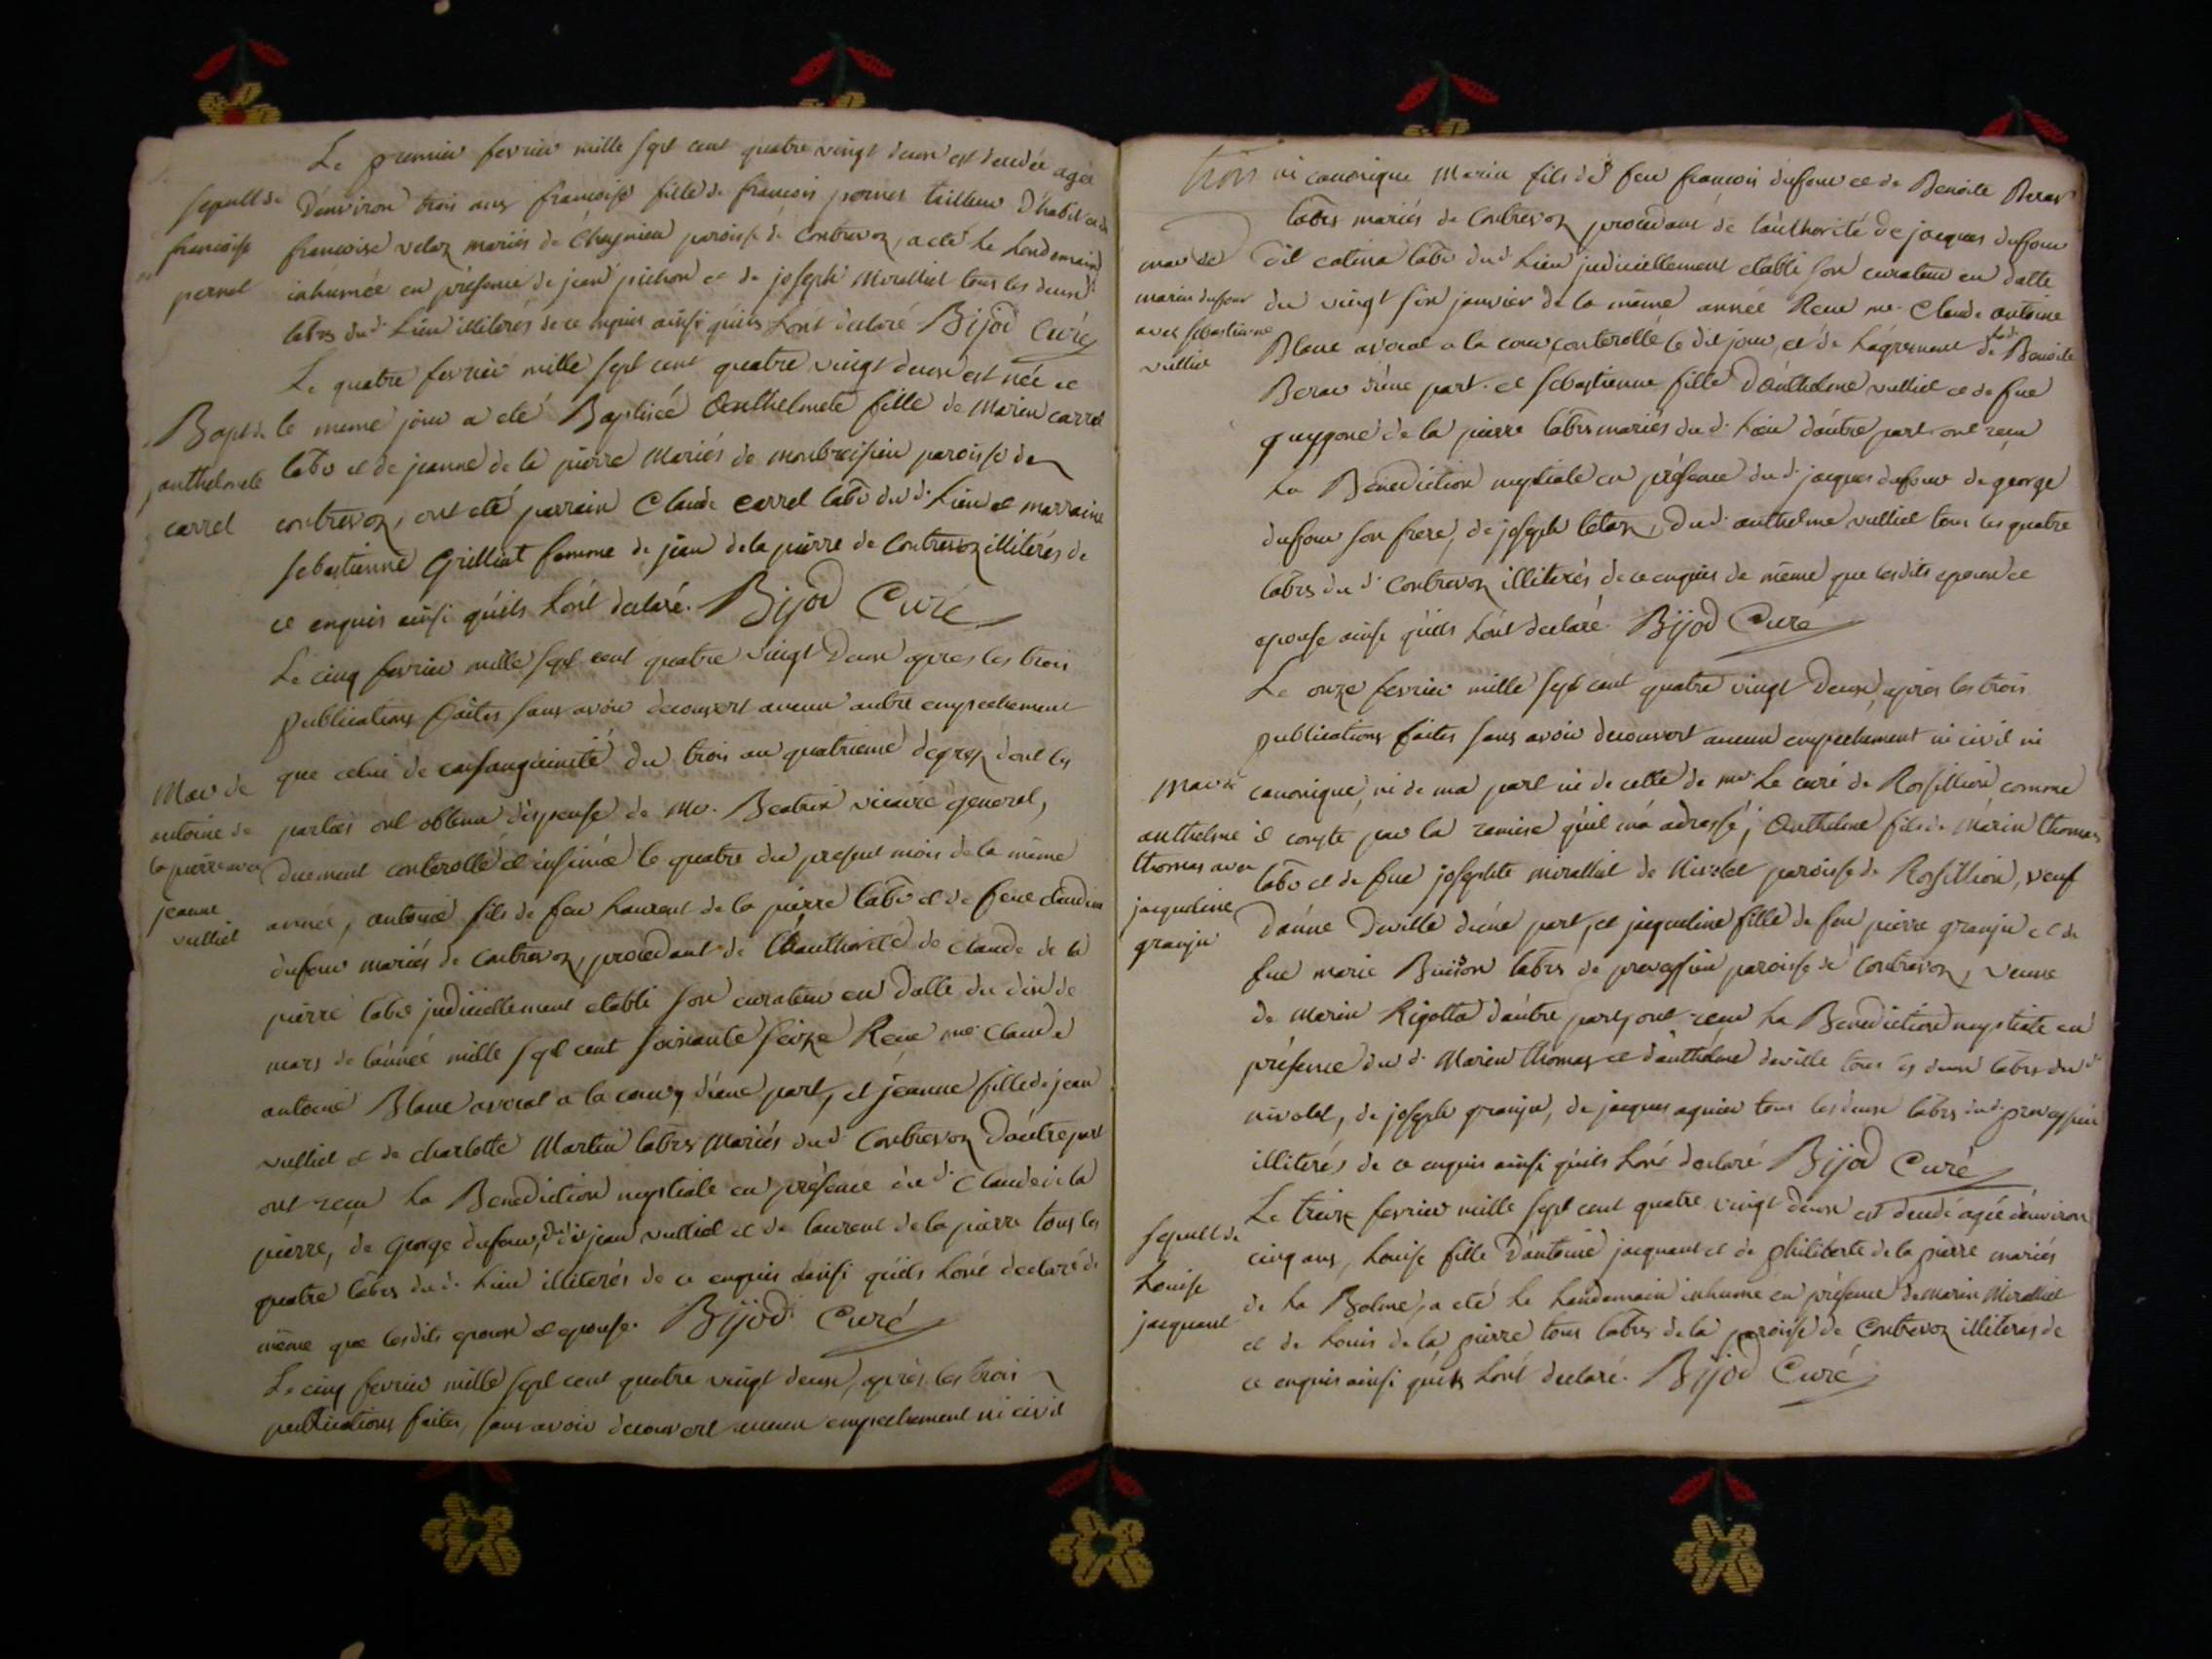 Le premier fevrier mille sept cent quatre vingt deux est decedée agée
sepult de
francoise
pernet
d'environ trois ans francoise fille de francois pernet tailleur d'habit et de
francoise velaz mariés de Cheynieu paroisse de Contrevoz, a eté le lendemain
inhumée en présence de jean pichon et de joseph Miralliet tous les deux
labrs dud. Lieu illiterés de ce enquis ainsi qu'ils l'ont declaré Bijod Curé
Le quatre fevrier mille sept cent quatre vingt deux est née et
Bapt de
anthelmete
carrel
le meme jour a eté Baptisée Anthelmete fille de Marin carrel
labr et de jeanne de la pierre Mariés de montbreisieu paroisse de
contrevoz, ont eté parrain Claude Carrel labr dud. Lieu et marraine
sebastienne Grilliat femme de jean de la pierre de Contrevoz illiterés de
ce enquis ainsi qu'ils l'ont declaré. Bijod Curé
Le cinq fevrier mille sept cent quatre vingt Deux apres les trois
publications faites sans avoir decouvert aucun autre empechement
Mar de
antoine de
la pierre avec
jeanne
vulliet
que celui de consanguinité du trois au quatrieme degrez dont les
parties ont obtenu dispense de Mr. Beatrix vicaire general,
duement conterollé et insinué le quatre du present mois de la même
année, antoine fils de feu Laurent de la pierre labr et de feue claudine
dufour mariés de Contrevoz, procedant de l'authorité de Claude de la
pierre labr judiciellement etabli son curateur en datte du dix de
mars de l'année mille sept cent soixante seize Receu me Claude
antoine Blanc avocat a la cour, d'une part, et jeanne fille de jean
vulliet et de charlotte Martin labrs Mariés dud. Contrevoz d'autre part
ont reçu la Benediction nuptiale en présence dud. Claude de la
pierre, de George dufour, dud. jean vulliet et de laurent de la pierre tous les
quatre labrs dud. Lieu illiterés de ce enquis ainsi qu'ils l'ont declaré de
même que lesdits epoux et epouse. Bijod Curé
Le cinq fevrier mille sept cent quatre vingt deux, après les trois
publications faites, sans avoir decouvert aucun empechement ni civil
trois
ni canonique Marin fils de feu francois dufour et de Benoite Berar
labrs mariés de Contrevoz procedant de l'authorité de jacques dufour
mar de
marin dufour
avec sebastienne
vulliet
dit catina labr dud. Lieu judiciellement etabli son curateur en datte
du vingt six janvier de la même année Receu me. Claude antoine
Blanc avocat a la cour, conterollé le dit jour, et de l'agrement de lad. Benoite
Berar d'une part. et sebastienne fille d'Anthelme vulliet et de feue
guygone de la pierre labrs mariés dud. Lieu d'autre part ont reçu
La Benediction nuptiale en présence dud. jacques dufour de george
dufour son frere, de joseph letaz, dud. anthelme vulliet tous les quatre
labrs dud. Contrevoz illiterés de ce enquis de même que lesdits epoux et
epouse ainsi qu'ils l'ont declaré. Bijod Curé
Le onze fevrier mille sept cent quatre vingt Deux, apres les trois
publications faites sans avoir decouvert aucun empechement ni civil ni
Mar de
anthelme
thomas avec
jacqueline
granju
canonique, ni de ma part ni de celle de mr. Le curé de Rossillion comme
il conste par la remise qu'il m'a adressé; Anthelme fils de Marin thomas
labr et de feue josephte miralliet de Nivolet paroisse de Rossillion, veuf
d'anne Deville d'une part, et jacqueline fille de feu pierre granju et de
feue marie Buisson labrs de preveyssieu paroisse de Contrevoz, veuve
de Marin Rigottaz d'autre part, ont reçu La Benediction nuptiale en
présence dud. Marin thomas et d'anthelme deville tous les deux labrs dud.
nivolet, de joseph granju, de jacques agnier tous les deux labrs dud. preveyssieu
illiterés de ce enquis ainsi qu'ils l'ont declaré Bijod Curé
Le treize fevrier mille sept cent quatre vingt deux est decedé agée d'environ
sepult de
Louise
jacquant
cinq ans, Louise fille d'Antoine jacquant et de philiberte de la pierre mariés
de La Balme, a eté le Landemain inhumé en présence de Marin Miralliet
et de Louis de la pierre tous labrs de la paroisse de Contrevoz illiterés de
ce enquis ainsi qu'ils l'ont declaré. Bijod Curé